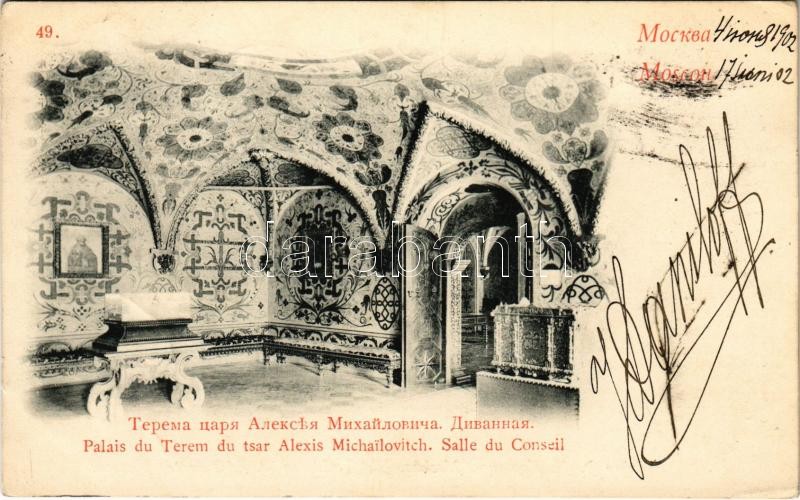 49.
Москва 4 июня 1902
Moscou 17 juni 02
darabanth
Терема царя Алексѣя Михайловича. Диванная.
Palais du Terem du tsar Alexis Michaïlovitch. Salle du Conseil